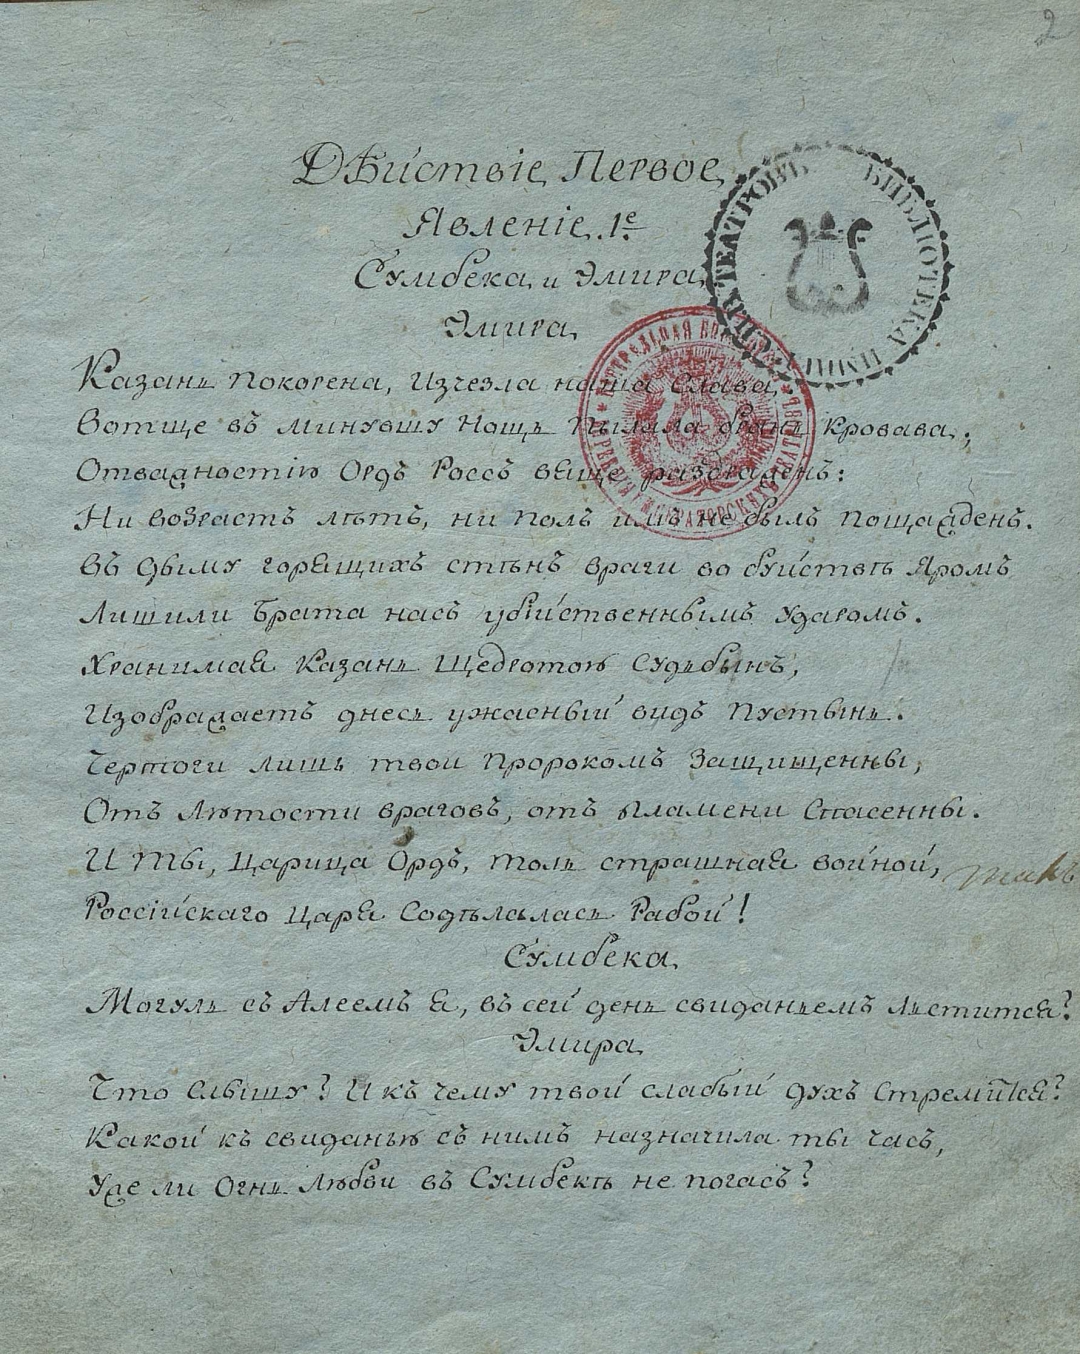 2
Дѣйствіе Первое
Явленіе 1е
Сумбека и Эмира
Эмира
Казань покорена, изчезла наша слава,
Вотще въ минувшу нощь пылала брань кровава;
Отважностію Ордъ Россъ вяще разъяжденъ:
Ни возрастъ лѣтъ, ни полъ имъ не былъ пощажденъ.
Въ дыму горящихъ стѣнъ враги во буйствѣ яромъ
Лишили брата насъ убійственнымъ ударомъ.
Хранимая Казань щедротою судьбынъ,
Изображаетъ днесь ужасный видъ пустынь.
Чертоги лишь твои Пророкомъ защищенны,
Отъ лютости враговъ, отъ пламени спасенны.
И ты, Царица Ордъ, толь страшная войной, такъ
Россійскаго Царя содѣлалась рабой!
Сумбека
Могуль съ Алеемъ я, въ сей день свиданьемъ льстится?
Эмира
Что слышу? И къ чему твой слабый духъ стремится?
Какой къ свиданью съ нимъ назначила ты часъ,
Уже ли огнь любви въ Сумбекѣ не погасъ?
БИБЛІОТЕКА ИМП. С.П.Б. ТЕАТРОВЪ
ЦЕНТРАЛЬНАЯ БИБЛІОТЕКА ИМПЕРАТОРСКИХЪ ТЕАТРОВЪ